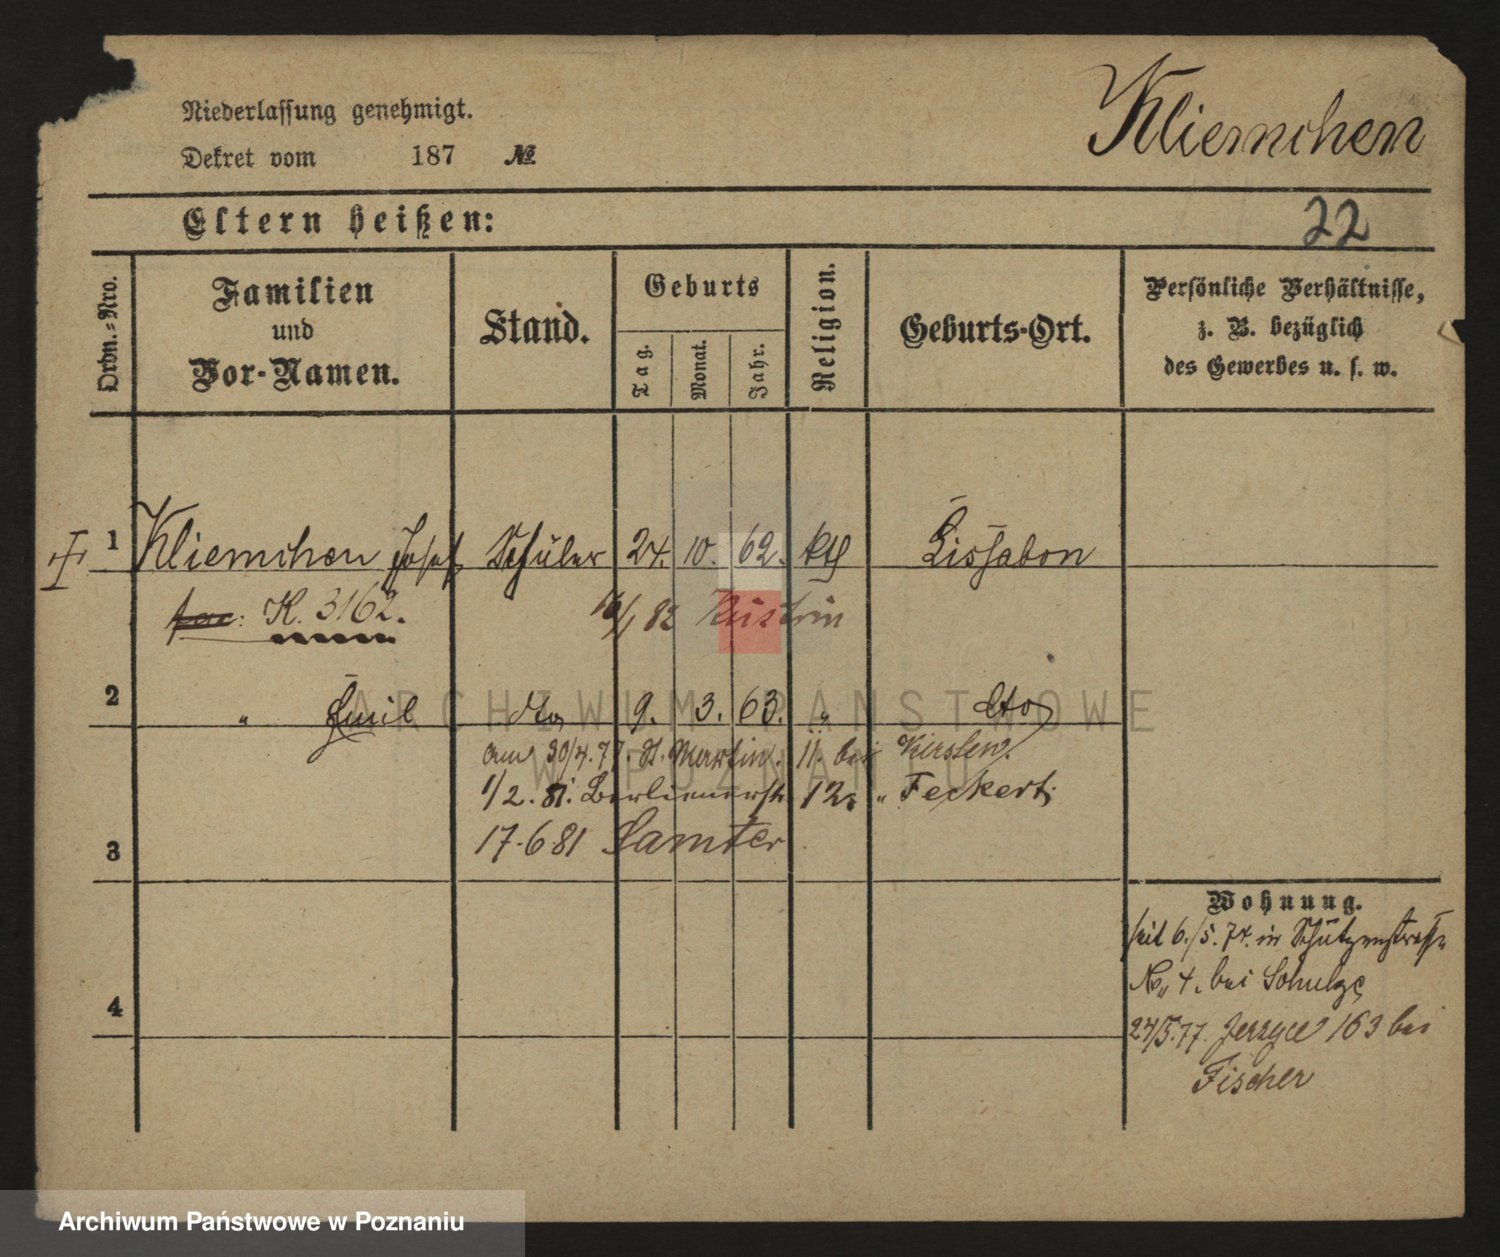 Niederlassung genehmigt.
Dekret vom 187 №
Kliemchen
Eltern heißen:
22
Ordn.=Nro.
Familien
und
Vor-Namen.
Stand.
Geburts
Tag.
Monat.
Jahr.
Religion.
Geburts-Ort.
Persönliche Verhältnisse,
z. B. bezüglich
des Gewerbes u. s. w.
1 Kliemchen Josef Schüler 24. 10. 62. kth Lissabon
K. 3162. 82
2 " Emil dto 9. 3. 63. " dto
am 30/4.77. St. Martin. 11. bei
1/2. 81. Berlinerstr 12. " Feckert
17.6 81 Samter
3
4
Wohnung.
seit 6./5.74. in Schützenstrasse
No 4. bei Schulze
24/5.77. Jerzyce 163 bei
Fischer
ARCHIWUM PAŃSTWOWE
W POZNANIU
Archiwum Państwowe w Poznaniu